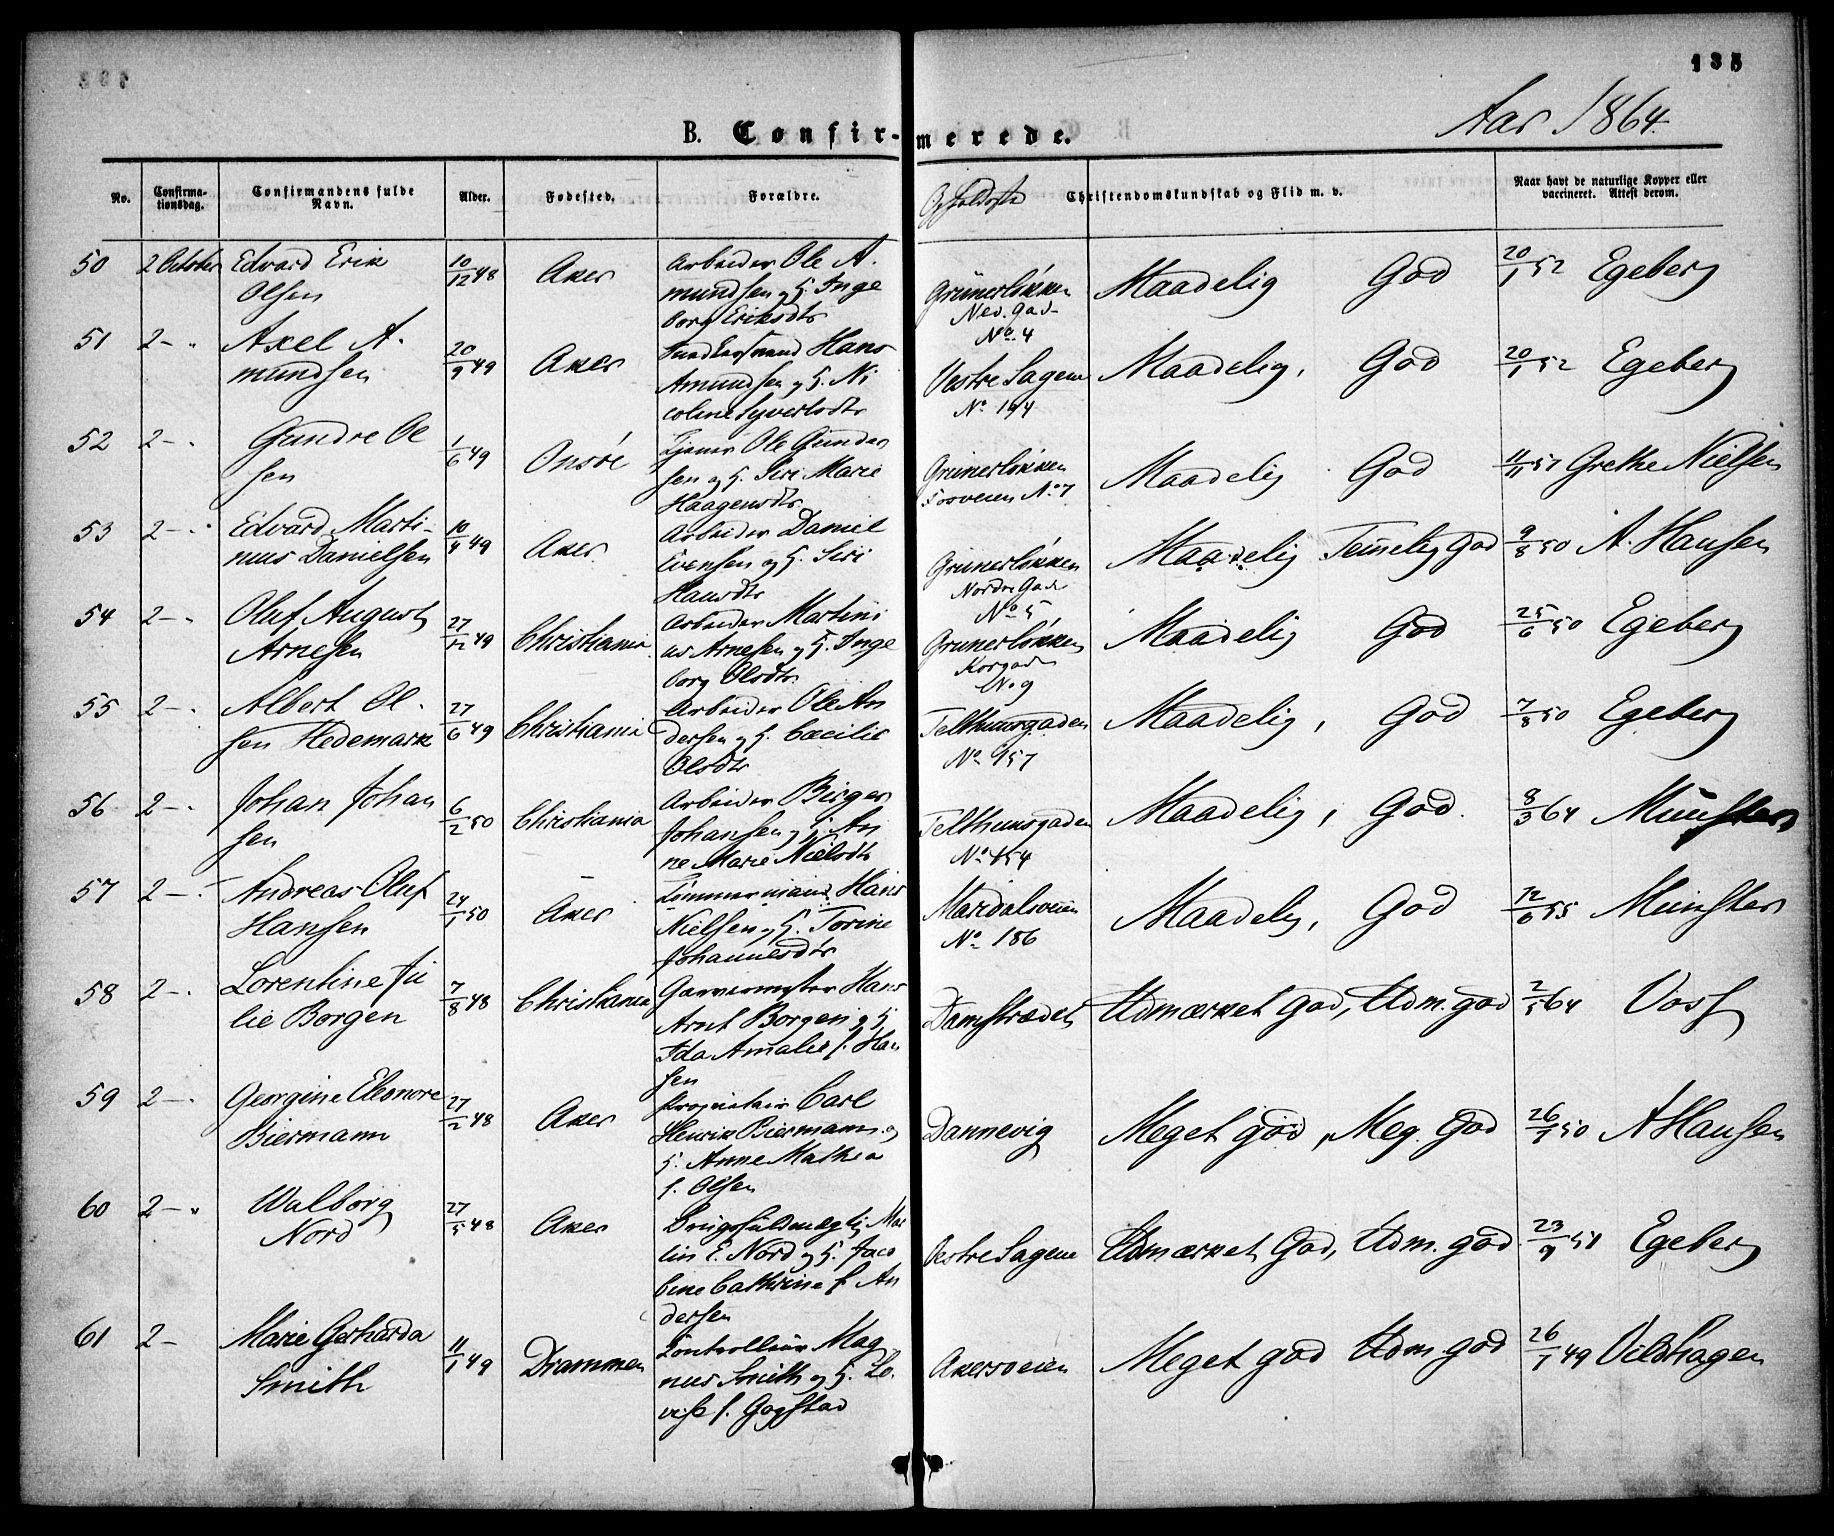 135
Aar 1864.
B. Confirmerede.
No.
Confirmationsdag.
Confirmandens fulde Navn.
Alder.
Fødested.
Forældre.
Opholdsste
Christendomskundskab og Flid m. v.
Naar havt de naturlige Kopper eller
vaccineret. Attest derom.
50 2 October Edvard Erik Olsen 10/12 48 Aker Arbeider Ole A. mundsen og H. Inge borg Eriksdtr Grünerløkken Ned. Gad- No. 4 Maadelig God 20/1 52 Egeberg
51 2 - „ Axel A. mundsen 20/9 49 Aker Hans Amundsen og H. Ni coline Syverisdtr Vestre Sagene No 194 Maadelig, God 20/1 52 Egeberg
52 2 - . Gundre Ol sen 1/6 49 Onsøe Tjener Ole Gunder sen og H. Siri Marie Haagensdtr Grünerløkken Fosveien No 7 Maadelig God 11/11 57 Grethe Nielsen
53 2 - . Edvard Marti- nus Danielsen 10/4 49 Aker Arbeider Daniel Evensen og H. Siri Hansdtr Grünerløkken Nordre Gade No 5 Maadelig Temelig God 9/8 50 A. Hansen
54 2 - . Oluf August Arnesen 27/12 49 Christiania Arbeider Martini us Arnesen og H. Inge borg Olsdtr Grünerløkken Korsgaden No 9 Maadelig God 25/6 50 Egeberg
55 2 - . Albert Ol. sen Hedemark 27/6 49 Christiania Arbeider Ole An dersen og H. Cæcilie Olsdtr Telthuusgaden No 957 Maadelig, God 7/8 50 Egeberg
56 2 - . Johan Johan sen 6/2 50 Christiania Arbeider Birger Johansen og H. An ne Marie Nielsdtr Telthuusgaden No 454 Maadelig, God. 8/3 64 Münster
57 2 - Andreas Oluf Hansen 24/1 50 Aker Tømmermand Hans Nielsen og H. Torine Johannesdtr Maridalsveien No 186 Maadelig, God 12/6 55 Münster
58 2 - . Lorentine Ju lie Borgen 7/8 48 Christiania Garvermester Hans Arnt Borgen og H. Ida Amalie f. Han sen Damstrædet Udmærket God, Udm. god 2/5 64 Voss
59 2 - . Georgine Eleonore Biermann 27/2 48 Aker Proprietair Carl Henrik Biermann og H. Anne Mathea f. Olsen Dannevig Meget god, Meg. God 26/7 50 A Hansen
60 2 - „ Walborg Nord 27/5 48 Aker Brugsfuldmægtig Mar tin E. Nord og H. Jaco bine Cathrine f. An dersen Vestre Sagene Udmærket God, Udm. god 23/9 51 Egeberg
61 2 - Marie Gerharda Smith 11/1 49 Drammen Controlleur Mag nus Smith og H. Lo. vise f. Gogstad Akersveien Meget god Udm. god 26/7 49 Vildhagen